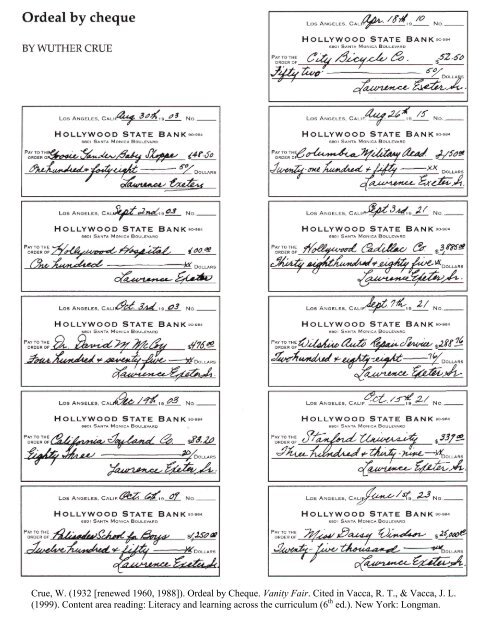 Ordeal by cheque
BY WUTHER CRUE
LOS ANGELES, CALIF. Aug. 30th 19 03 No.
HOLLYWOOD STATE BANK 90-984
6801 SANTA MONICA BOULEVARD
PAY TO THE ORDER OF Goosie Gander Baby Shoppe $148.50
One hundred + forty eight 50/ DOLLARS
Lawrence Exeter
LOS ANGELES, CALIF. Sept 2nd 19 03 No.
HOLLYWOOD STATE BANK 90-984
6801 SANTA MONICA BOULEVARD
PAY TO THE ORDER OF Hollywood Hospital $100.00
One hundred xx DOLLARS
Lawrence Exeter
LOS ANGELES, CALIF. Oct. 3rd 19 03 No.
HOLLYWOOD STATE BANK 90-984
6801 SANTA MONICA BOULEVARD
PAY TO THE ORDER OF Dr. David M McCoy $475.00
Four hundred + seventy five xx DOLLARS
Lawrence Exeter Sr.
LOS ANGELES, CALIF. Dec 19th 19 03 No.
HOLLYWOOD STATE BANK 90-984
6801 SANTA MONICA BOULEVARD
PAY TO THE ORDER OF California Toyland Co. $83.20
Eighty Three 20/ DOLLARS
Lawrence Exeter Sr.
LOS ANGELES, CALIF. Oct. 6th 19 09 No.
HOLLYWOOD STATE BANK 90-984
6801 SANTA MONICA BOULEVARD
PAY TO THE ORDER OF Palisades School for Boys $1,250.00
Twelve hundred + fifty xx DOLLARS
Lawrence Exeter Sr.
LOS ANGELES, CALIF. Apr. 18th 19 10 No.
HOLLYWOOD STATE BANK 90-984
6801 SANTA MONICA BOULEVARD
PAY TO THE ORDER OF City Bicycle Co. $52.50
Fifty two 50/ DOLLARS
Lawrence Exeter Sr.
LOS ANGELES, CALIF. Aug 26th 19 15 No.
HOLLYWOOD STATE BANK 90-984
6801 SANTA MONICA BOULEVARD
PAY TO THE ORDER OF Columbia Military Acad. $2,150.00
Twenty one hundred + fifty xx DOLLARS
Lawrence Exeter, Sr.
LOS ANGELES, CALIF. Sept 3rd, 19 21 No.
HOLLYWOOD STATE BANK 90-984
6801 SANTA MONICA BOULEVARD
PAY TO THE ORDER OF Hollywood Cadillac Co $3,885.00
Thirty eight hundred + eighty five xx DOLLARS
Lawrence Exeter, Sr.
LOS ANGELES, CALIF. Sept 7th 19 21 No.
HOLLYWOOD STATE BANK 90-984
6801 SANTA MONICA BOULEVARD
PAY TO THE ORDER OF Wilshire Auto Repair Service $288.76
Two hundred + eighty-eight 76/ DOLLARS
Lawrence Exeter Sr.
LOS ANGELES, CALIF. Oct. 15th 19 21 No.
HOLLYWOOD STATE BANK 90-984
6801 SANTA MONICA BOULEVARD
PAY TO THE ORDER OF Stanford University $339.00
Three hundred + thirty-nine xx DOLLARS
Lawrence Exeter Sr.
LOS ANGELES, CALIF. June 1st, 19 23 No.
HOLLYWOOD STATE BANK 90-984
6801 SANTA MONICA BOULEVARD
PAY TO THE ORDER OF Miss Daisy Windsor $25,000.00
Twenty-five thousand xx DOLLARS
Lawrence Exeter Sr.
Crue, W. (1932 [renewed 1960, 1988]). Ordeal by Cheque. Vanity Fair. Cited in Vacca, R. T., & Vacca, J. L.
(1999). Content area reading: Literacy and learning across the curriculum (6th ed.). New York: Longman.